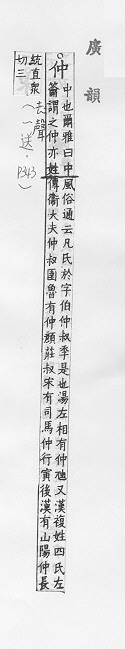 廣韻
仲
中也爾雅曰中風俗通云凡氏於字伯仲叔季是也湯左相有仲虺又漢複姓四氏左
籥謂之仲亦姓傳衛大夫仲叔圉魯有仲顏莊叔宋有司馬仲行寅後漢有山陽仲長
統直衆
切三
去聲
(一送·P343)